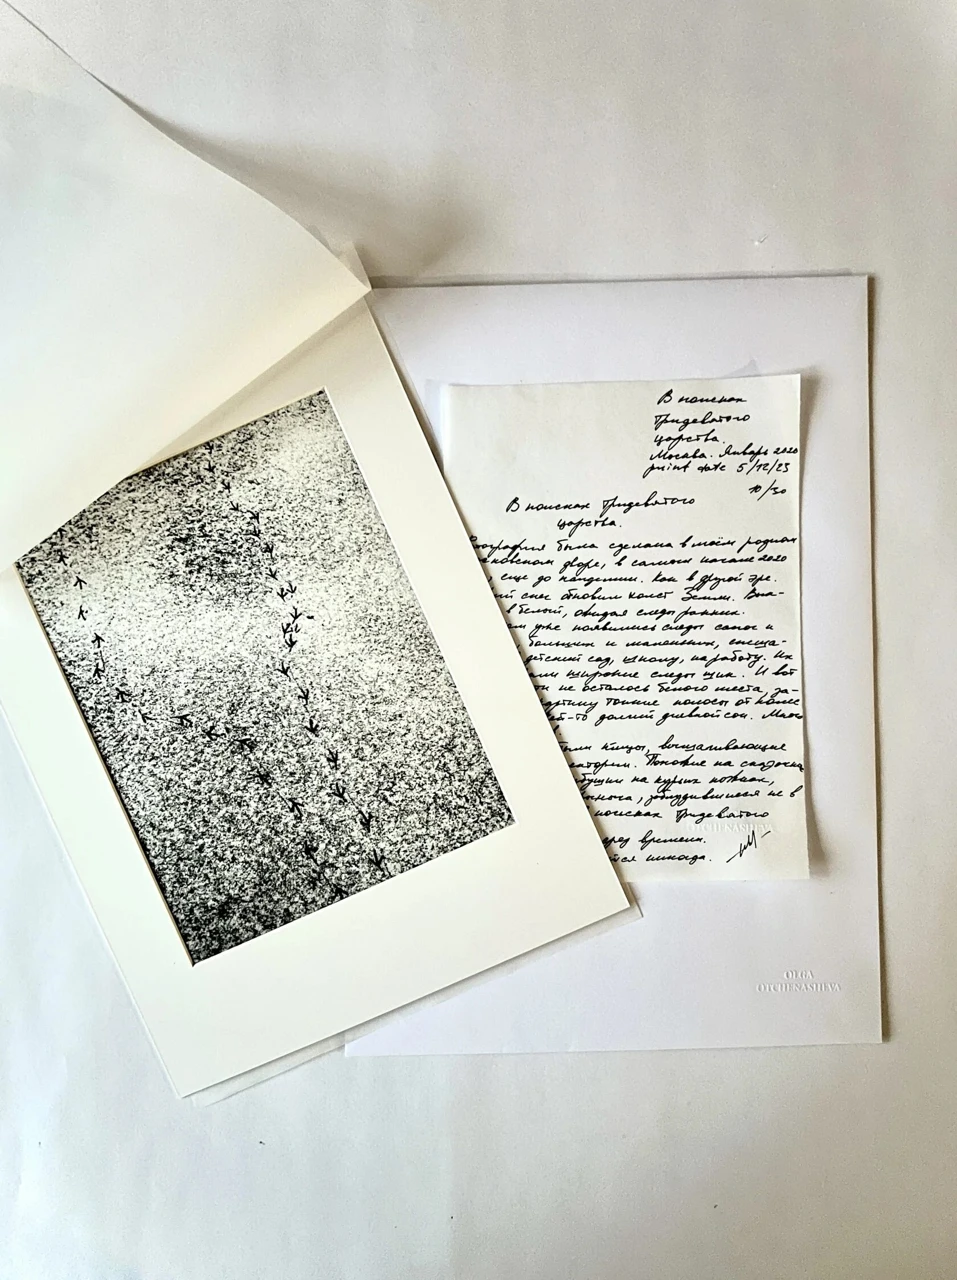 В поисках
Тридевятого
царства.
Москва. Январь 2020
print date 5/12/23
10/30
В поисках Тридевятого
царства.
ография была сделана в моём родном
ковском дворе, в самом начале 2020
, еще до пандемии. Как в другой эре.
ий снег обновил холст Земли.
в белый, ожидая следы ранних.
ем уже появились следы сапог и
больших и маленьких,
детский сад, школу, на работу. Их
али широкие следы шин. И вот
ти не осталось белого места, за-
картину тонкие полосы от колес
ей-то долгий дневной сон.
были птицы, вышагивающие
аектории. Похожие на сказочн
збушки на курьих ножках,
заблудившиеся не в
поисках Тридевятого
времени.
тся никогда.
OTCHENASHEVA
OLGA
OTCHENASHEVA